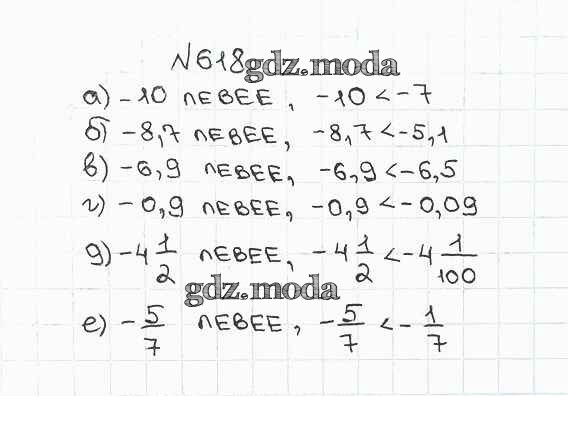 №618
gdz.moda
а) -10 левее, -10 < -7
б) -8,7 левее, -8,7 < -5,1
в) -6,9 левее, -6,9 < -6,5
г) -0,9 левее, -0,9 < -0,09
д) -4 1/2 левее, -4 1/2 < -4 1/100
gdz.moda
е) -5/7 левее, -5/7 < -1/7